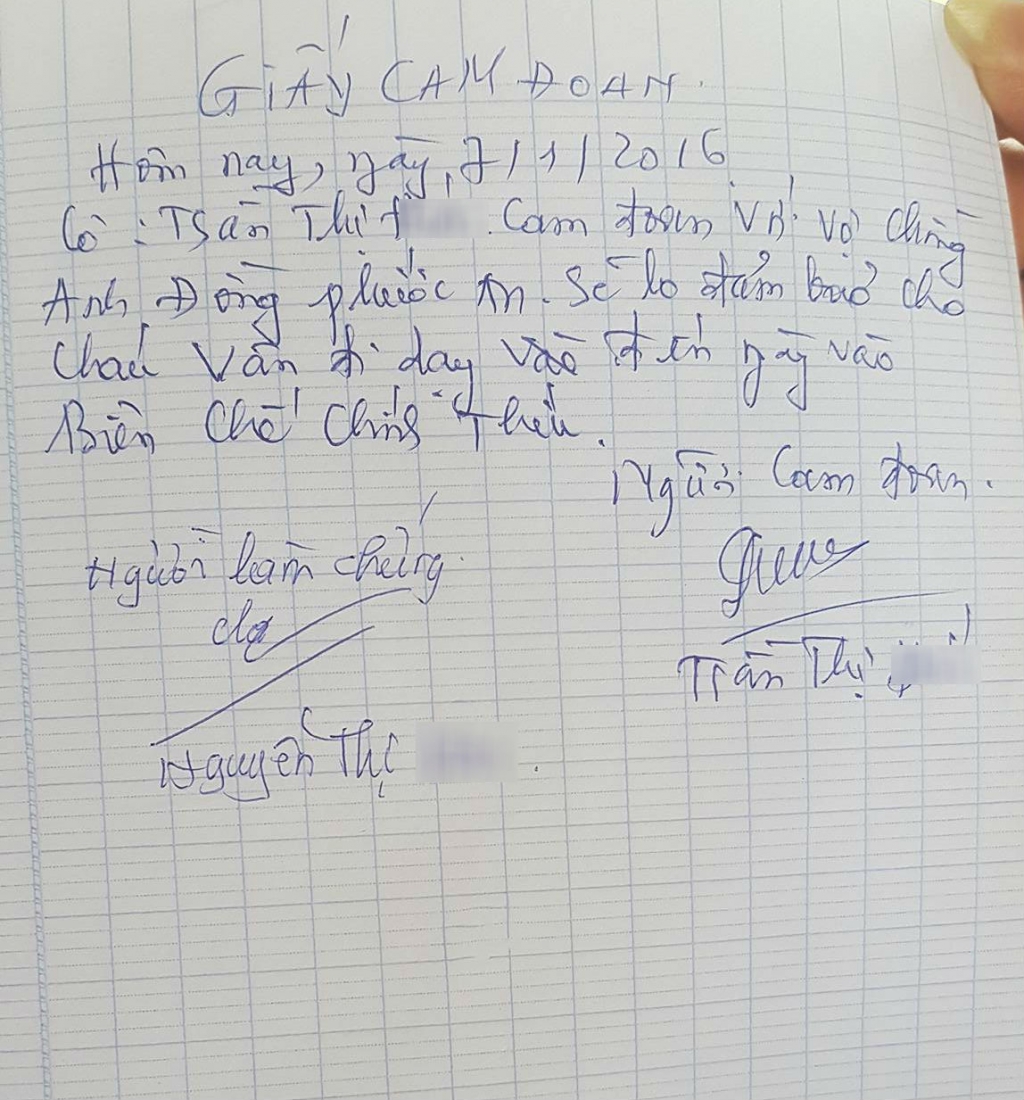 GIẤY CAM ĐOAN.
Hôm nay, ngày, 7/1/2016
Cô: Trần Thị. Cam đoan Với vợ chồng
Anh Đồng phước An. Sẽ lo đảm bảo cho
Cháu Vân đi dạy vào đến ngày vào
Biên Chế Chính Thức.
Người Cam đoan.
Người làm chứng.
Trần Thị
Nguyễn Thị